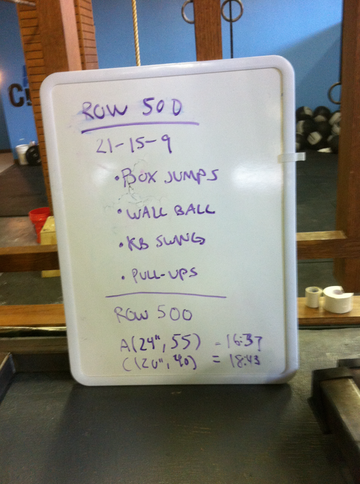 ROW 500
21-15-9
• BOX JUMPS
• WALL BALL
• KB SWINGS
• PULL-UPS
ROW 500
A (24", 55) - 16:37
C (20", 40) = 18:43